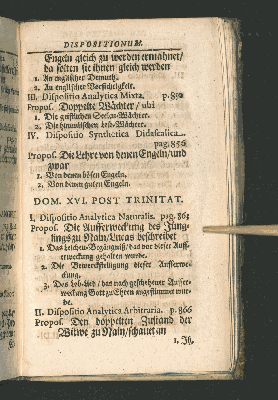 DISPOSITIONUM.
Engeln gleich zu werden ermahnet/
da selten sie ihnen gleich werden
1. An englischer Demuth.
2. An englischer Vorsichtigkeit.
III. Dispositio Analytica Mixta. p. 850
Propos. Doppelte Wächter / ubi
1. Die geistlichen Seelen-Wächter.
2. Die himmlischen Leib-Wächter.
IV. Dispositio Synthetica Didascalica..
pag. 856
Propos. Die Lehre von denen Engeln/ und
zwar
1. Von denen bösen Engeln.
2. Von denen guten Engeln.
DOM. XVI. POST TRINITAT.
I. Dispositio Analytica Naturalis. pag. 861
Propos. Die Aufferweckung des Jüng-
lings zu Nain/ Lucas beschreibet
1. Das Leichen-Begängniß/ das vor dieser Auff-
erweckung gehalten wurde.
2. Die Bewerckstelligung dieser Aufferwe-
ckung.
3. Das Lob-Lied / das nach geschehener Auffer-
weckung Gott zu Ehren angestimmet wur-
de.
II. Dispositio Analytica Arbitraria. p. 866
Propos. Den doppelten Zustand der
Witwe zu Nain/ schauet an
1. Ih,